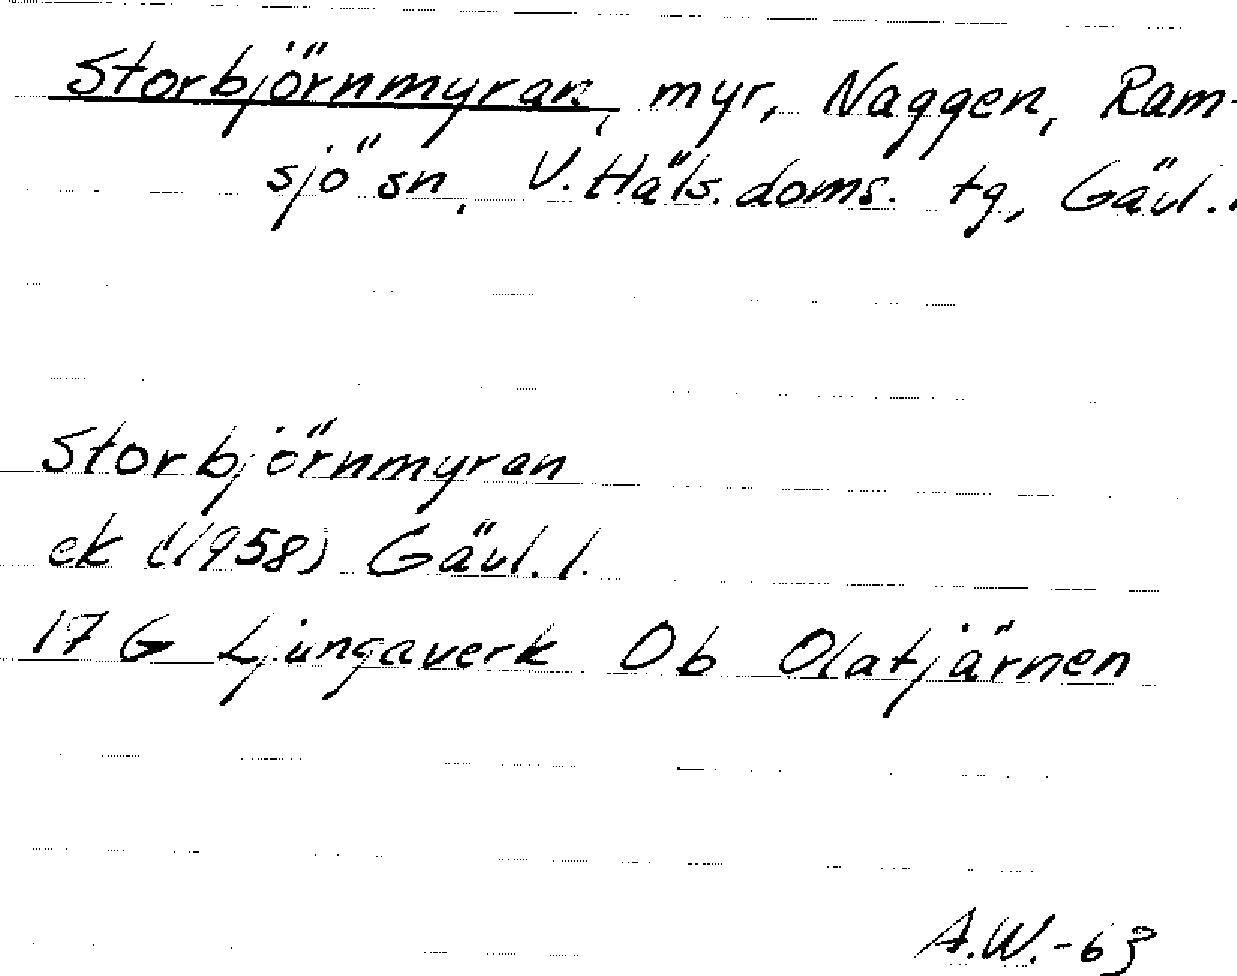 Storbjörnmyran, myr, Naggen, Ram-
sjö sn, V. Häls. doms. tg, Gävl. l
Storbjörnmyran
ek (1958) Gävl. l.
17 G Ljungaverk Ob Olatjärnen
A.W.-63